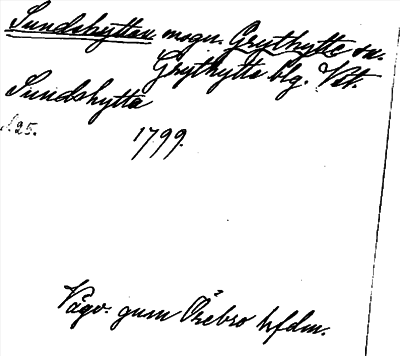 Sundshyttan msgn. Grythytte sn.
Grythytte blg. Vstm.
Sundshytta
s. 25.
1799.
Vägv. gnm Örebro hfdm.